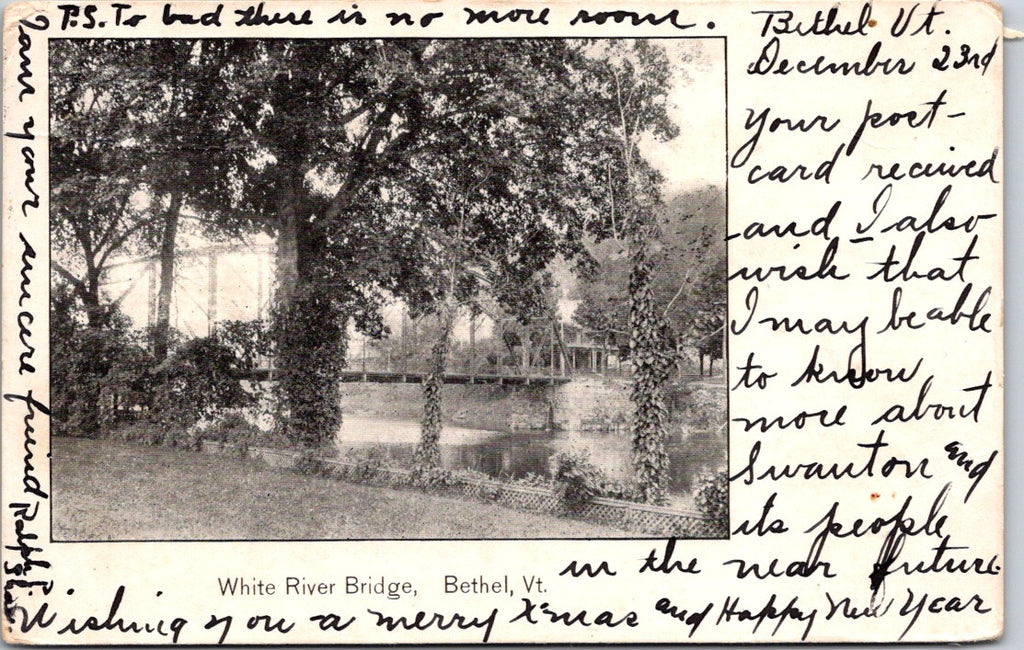 Bethel Vt.
December 23rd
Your post-
card received
and I also
wish that
I may be able
to know
more about
Swanton and
its people
in the near future.
White River Bridge, Bethel, Vt.
Wishing you a merry X'mas and Happy New Year
I am your sincere friend Ralph
P.S. To bad there is no more room.